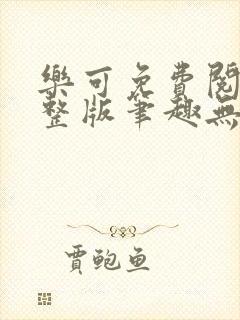 樂可免費閱
整版筆趣無
賈鲍鱼